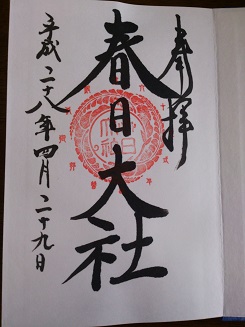 奉拝
春日大社
平成二十八年四月二十九日